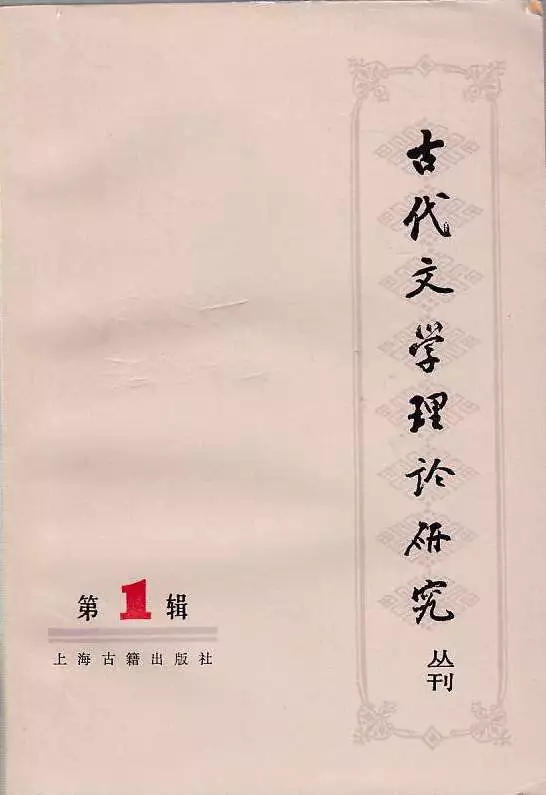 古代文学理论研究
丛刊
第1辑
上海古籍出版社